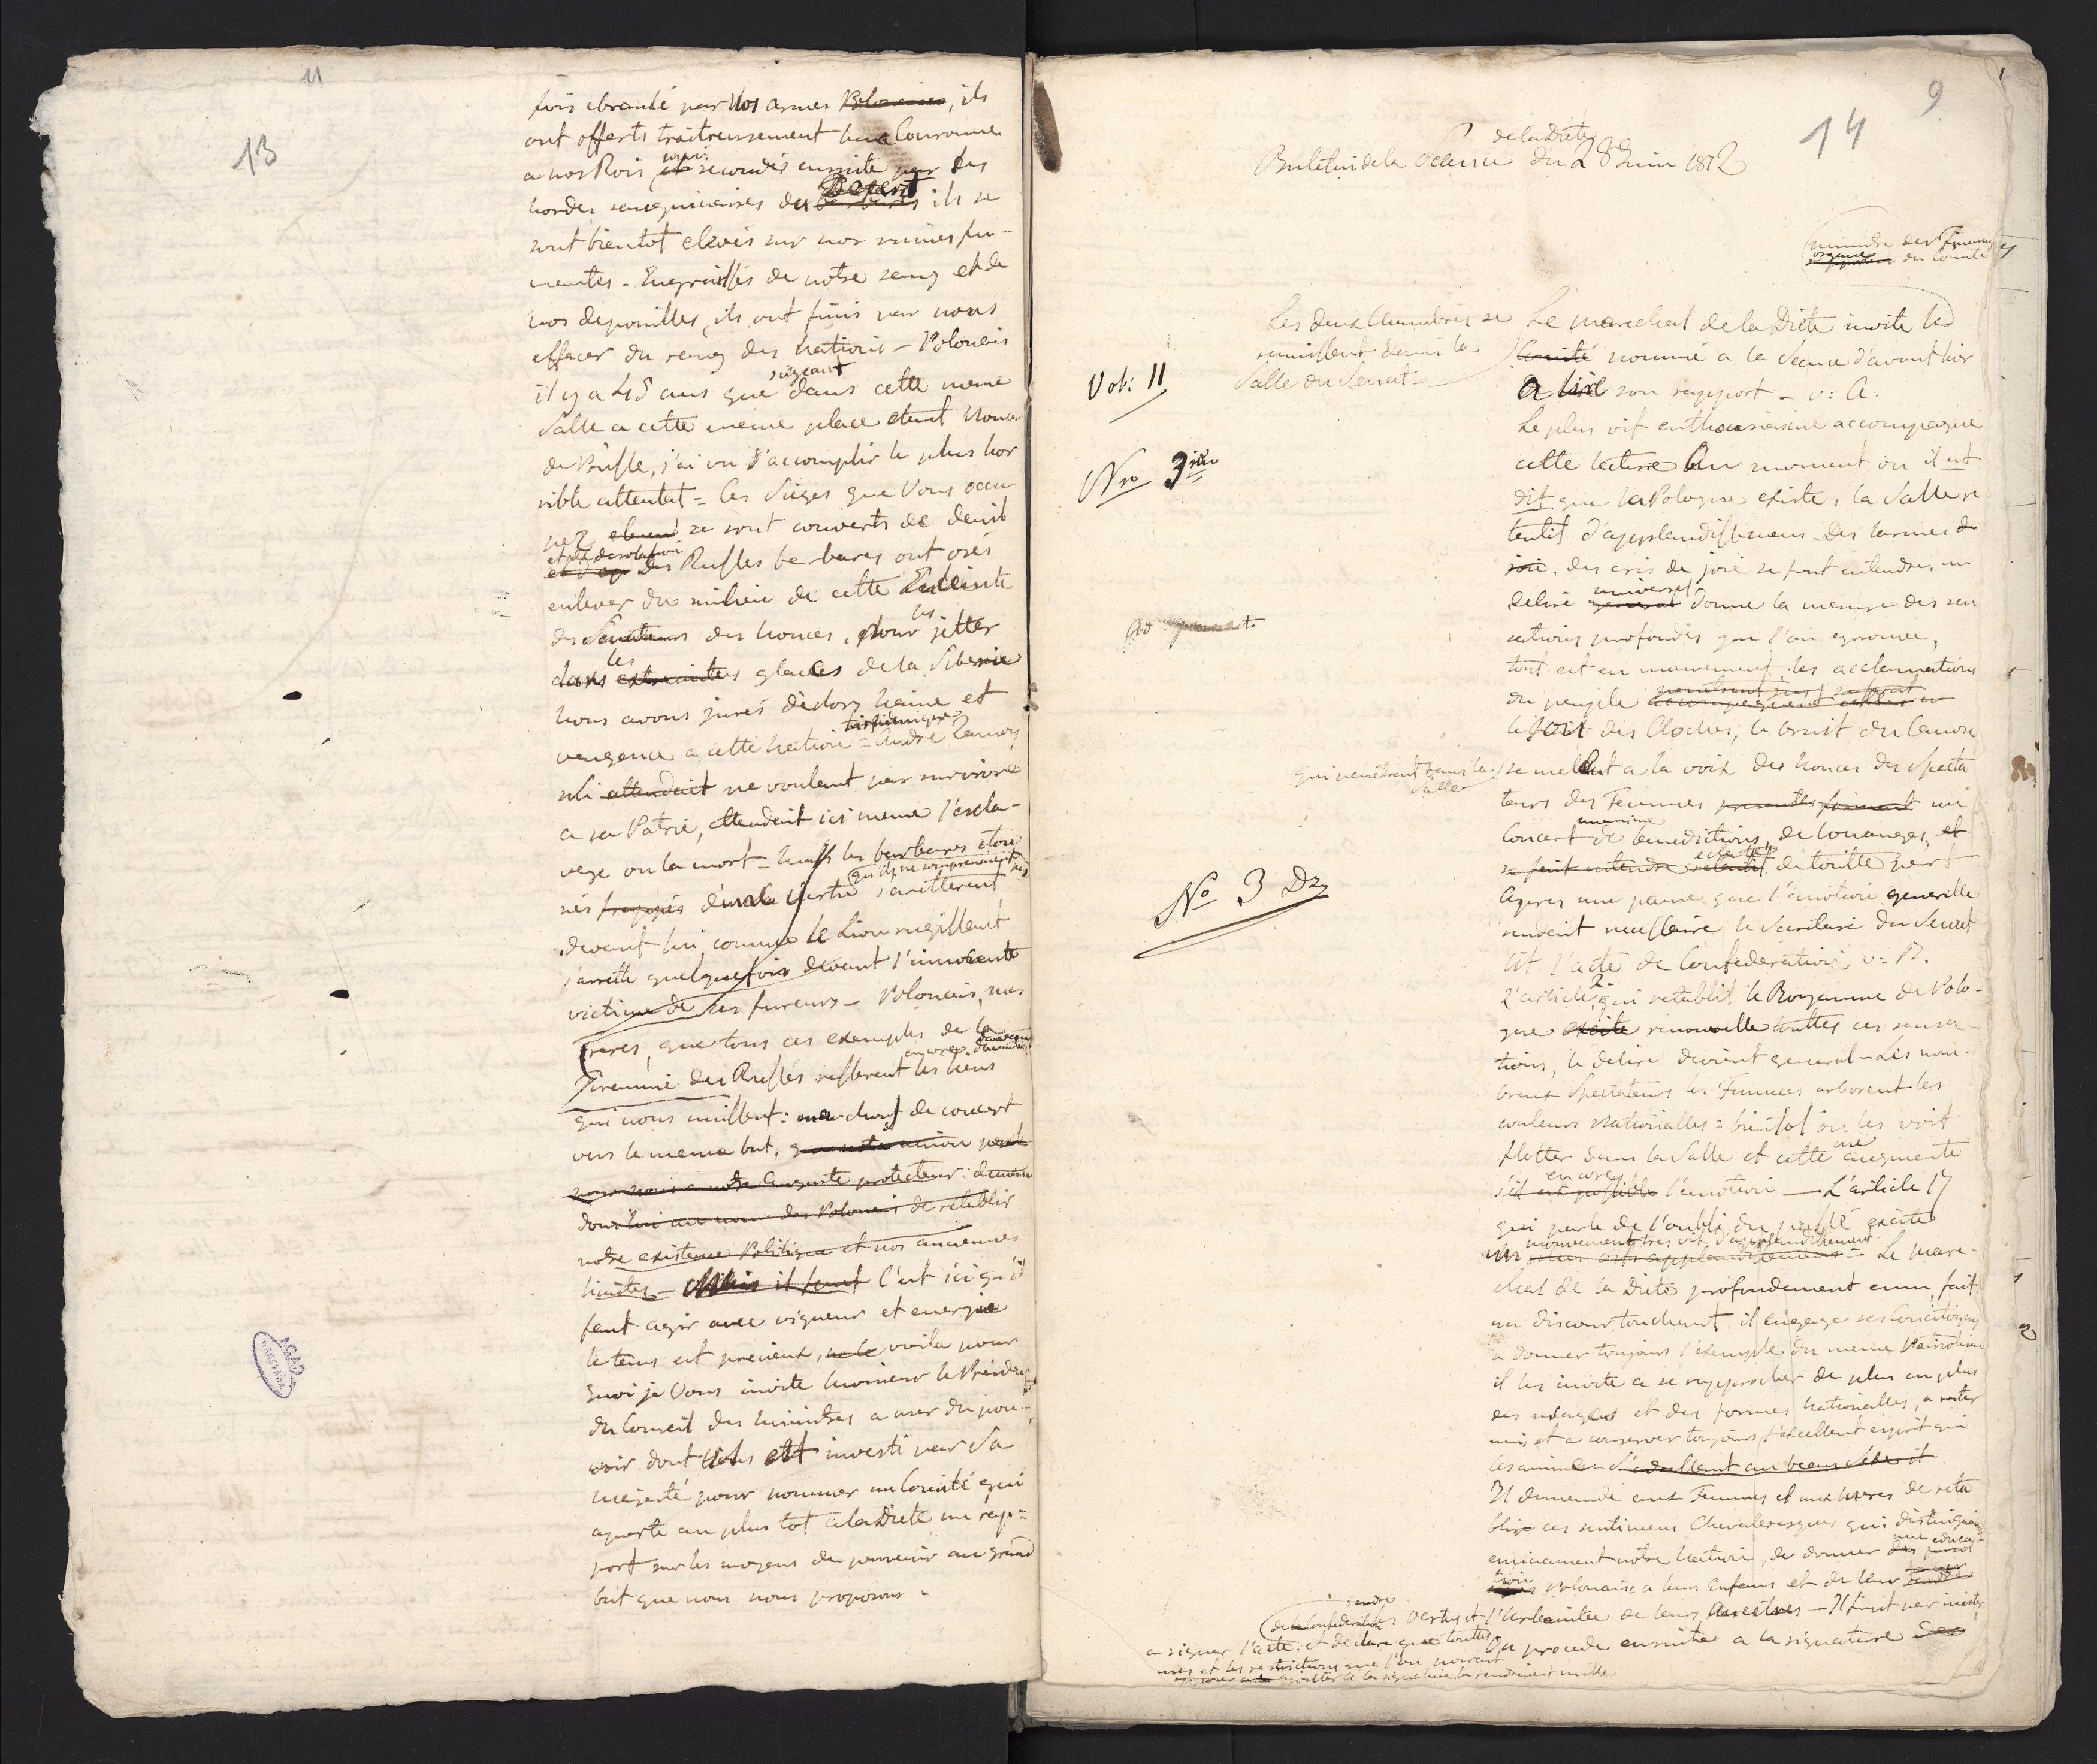 11
13
fois ebranlé par Nos armes Polonaises, ils
ont offerts traitreusement une Couronne
a nos Rois mais secondés ensuite par des
hordes sanguinaires du Desert ils se
sont bientot elevés sur nos ruines fu-
mantes - Engraissés de notre sang et de
nos depouilles, ils ont finis par nous
effacer du rang des Nations - Polonais
il y a 45 ans que siégeant dans cette meme
Salle a cette meme place etant Nonce
de , j'ai vu s'accomplir le plus hor
rible attentat = Ces Sieges que Vous occu
pez se sont couverts de deuil
et de desolation Des Russes barbares ont osés
enlever du milieu de cette Enceinte
des Senateurs des Nonces, pour les jetter
dans les glaces de la Siberie
Nous avons jurés dèslors haine et
vengence a cette Nation = André Zamoy
ski ne voulant pas survivre
a sa Patrie, attendait ici meme l'escla-
vage ou la mort - mais les barbares eton
nés frappés d'une Vertu qu'ils ne comprenaient pas s'arretterent
devant lui comme le Lion rugissant
s'arrette quelquefois devant l'innocente
victime de ses fureurs - Polonais, mes
freres, que tous ces exemples de la
Tirannie des Russes resserent encore davantage les liens
qui nous unissent: marchons de concert
vers le meme but, que notre union
nous a notre Auguste protecteur: demandons
lui au nom des Polonais de retablir
notre existence Politique et nos anciennes
limites - Mais il faut C'est ici qu'il
faut agir avec vigueur et energie
le tems est precieux, voila pour
quoi je Vous invite Monsieur le President
du Conseil des Ministres a user du pou-
voir dont Vous etes investi par Sa
Majesté pour nommer un Comité qui
aporte au plus tot a la Diete un rap=
port sur les moyens de parvenir au grand
but que nous nous proposons -
AGAD
WARSZAWA
9
14
Buletin de la Seance de la Diete du 28 Juin 1812
ministre des Finances
organe du Comité
Vol: 11
Nro 3
No 3 Dz
Les deux Chambres se
reunissent dans la
Salle du Senat -
Le marechal de la Diete invite le
Comité nommé a la Seance d'avant hier
a lire son rapport - v: A.
Le plus vif enthousiasme accompagne
cette lecture Au moment ou il est
dit que la Pologne existe, la Salle re
tentit d'applaudissemens Des larmes de
joie, des cris de joie se font entendre, un
Delire universel donne la mesure des sen
sations profondes que l'on eprouve,
tout est en mouvement les acclamations
du peuple
le son des Cloches, le bruit du Canon
qui penetrent dans la Salle se melent a la voix des Nonces des Specta
teurs des Femmes un
Concert unanime de benedictions, de louanges, et
se fait entendre de toutte part
Apres une pause que l'emotion generalle
rendait necessaire le Secretaire du Senat
lit l'acte de Confederation v= B.
L'article 2 qui retablit le Royaume de Polo-
gne excite renouvelle touttes ces sensa-
tions, le delire devient general - Les nom-
breux Spectateurs les Femmes arborent les
couleurs Nationalles = bientot on les voit
flotter dans la Salle et cette vue augmente
encore s'il est possible l'emotion - L'article 17
qui parle de l'oubli du passé excite
un mouvement tres vif d'applaudissement = Le mare-
chal de la Diete profondement emu fait
un discour touchant. il engage ses Concitoyens
a donner toujours l'exemple du meme Patriotisme
il les invite a se rapprocher de plus en plus
des usages et des formes Nationalles, a rester
unis et a conserver toujours l'excellent esprit qui
les anime - S'adressant au beau Sexe il
Il demande aux Femmes et aux meres de reta
blir ces sentimens Chevaleresques qui distinguaient
eminament notre Nation, de donner une educa-
tion Polonaise a leurs Enfans et de leur
rendre les vertus et l'Urbanité de leurs Ancetres - Il finit par inviter
a signer l'acte de la Confederation et declare que touttes
On procede ensuite a la signature des
et les restrictions que l'on pourait
ajoutter a la signature la rendraient nulle